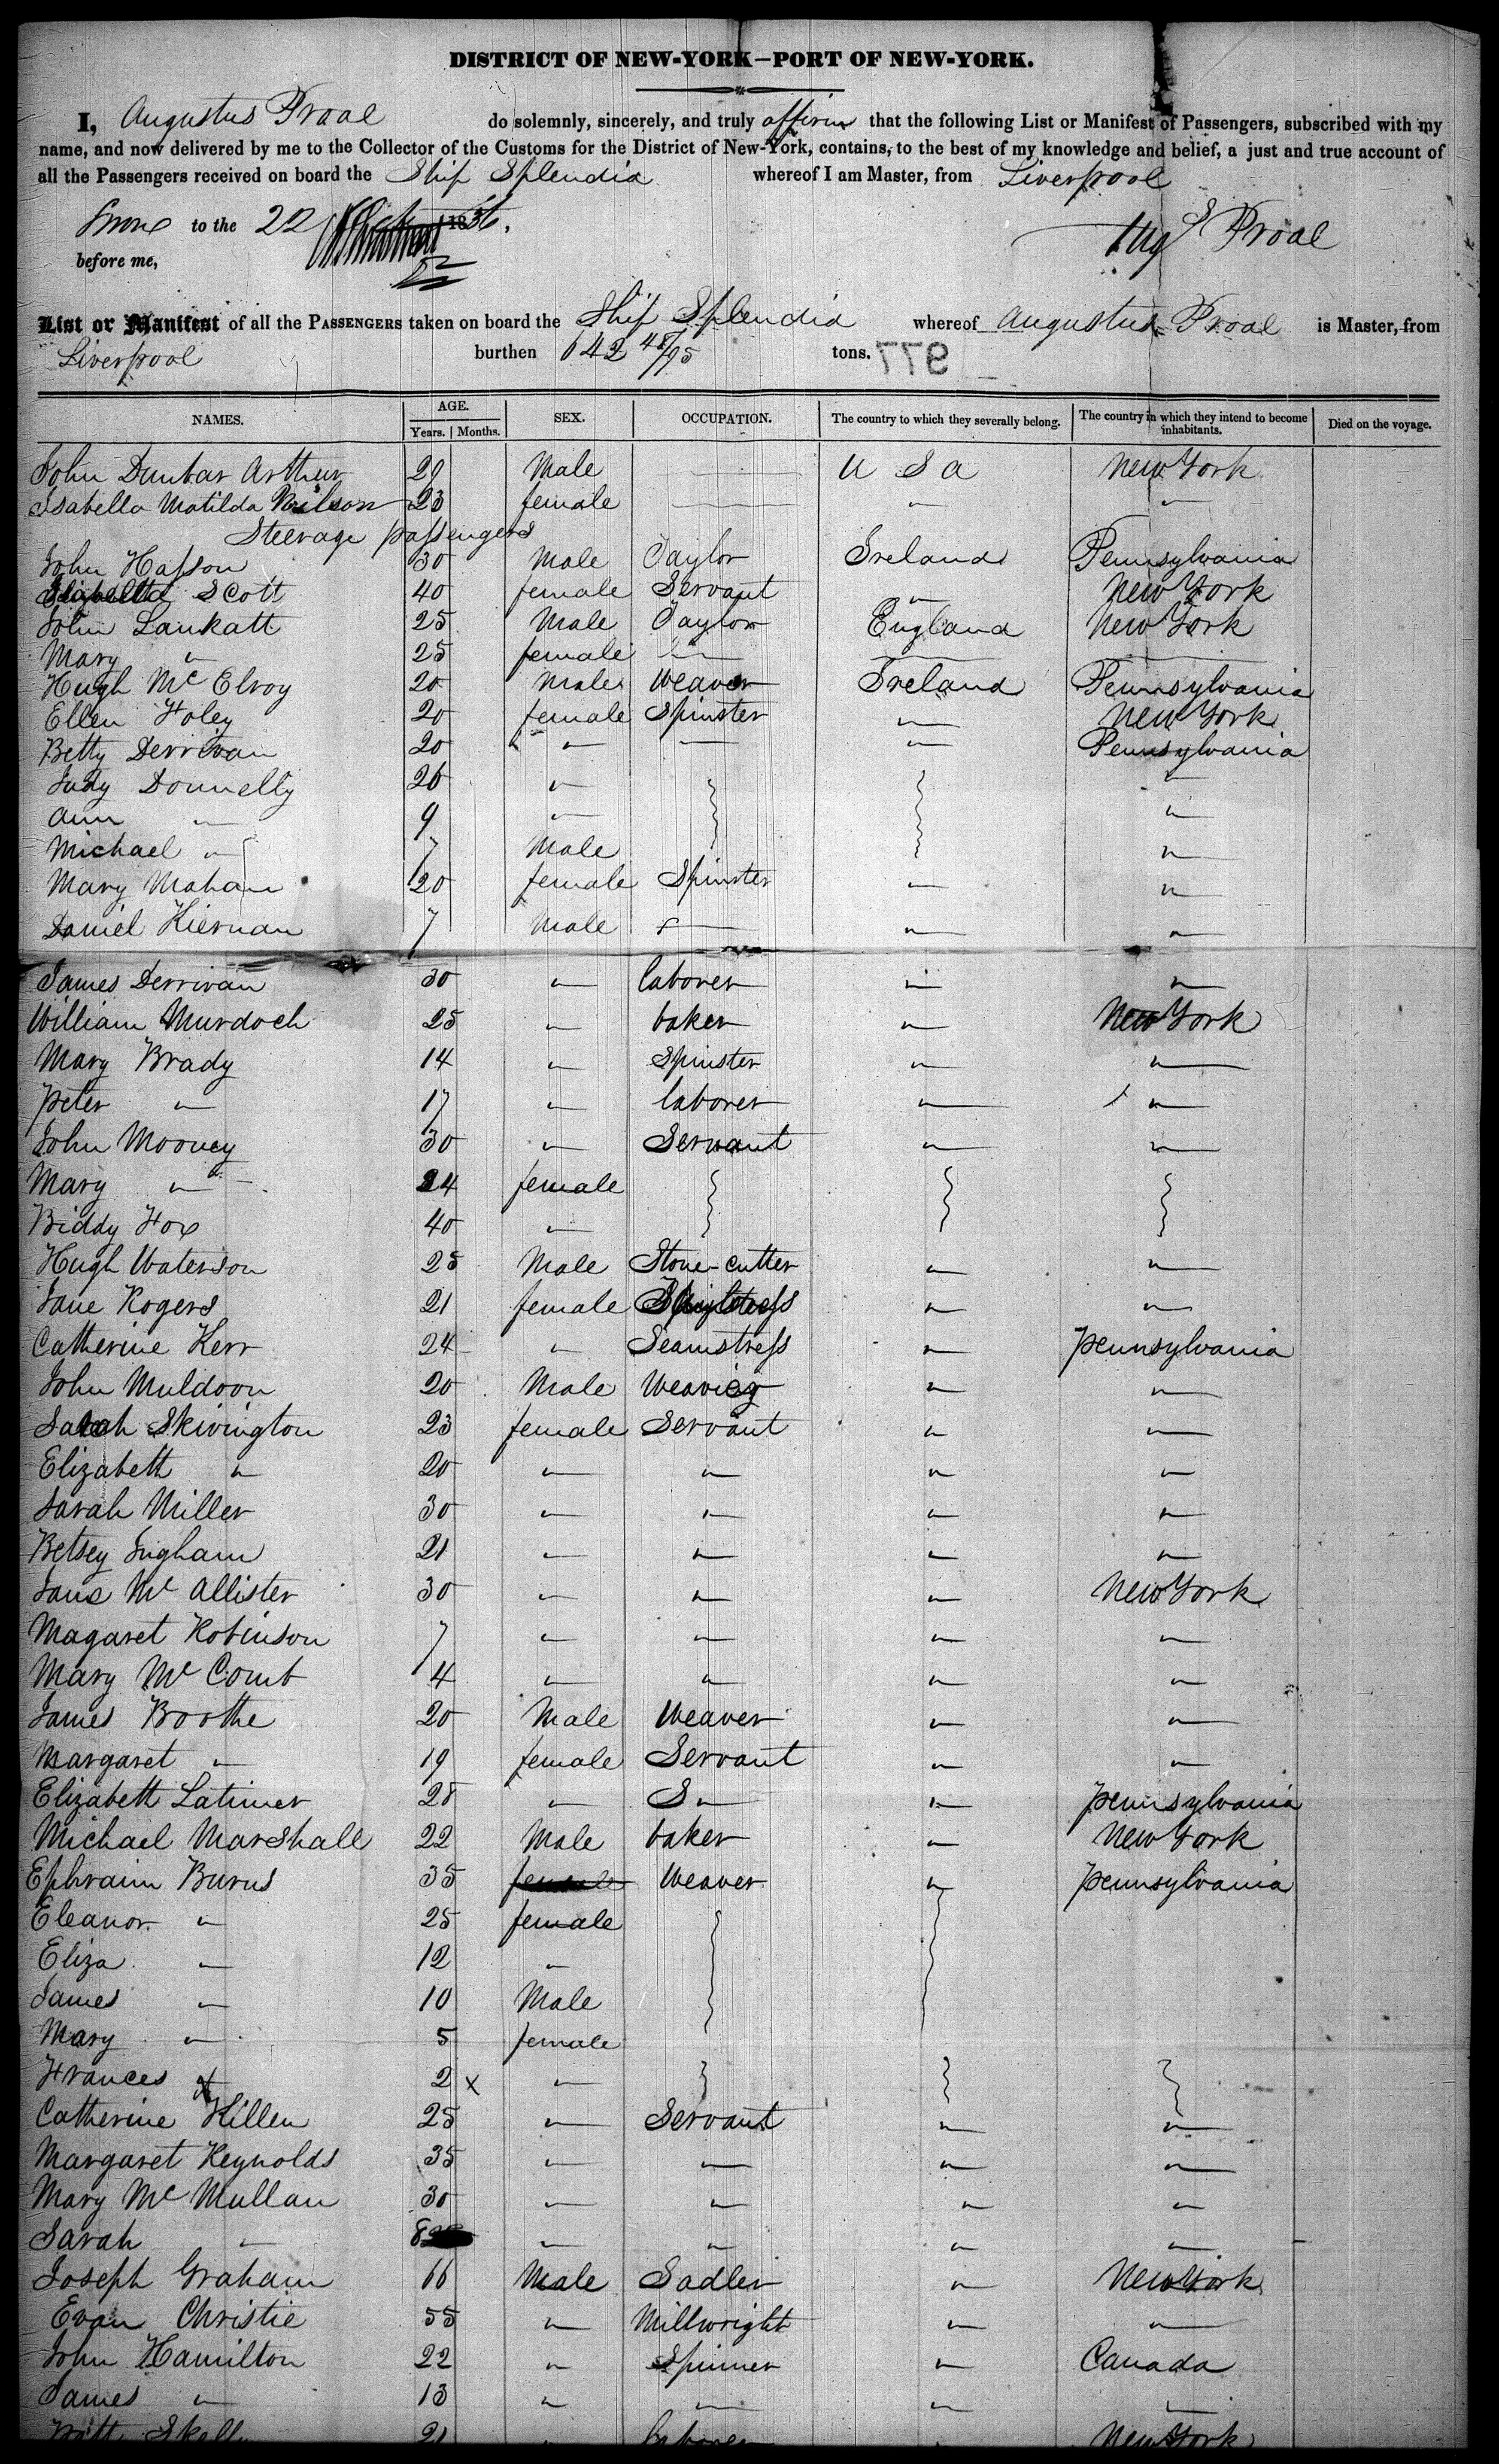 DISTRICT OF NEW-YORK—PORT OF NEW-YORK.
I, Augustus Proal do solemnly, sincerely, and truly affirm that the following List or Manifest of Passengers, subscribed with my
name, and now delivered by me to the Collector of the Customs for the District of New-York, contains, to the best of my knowledge and belief, a just and true account of
all the Passengers received on board the Ship Splendid whereof I am Master, from Liverpool
to the 22 1836. Augs Proal
before me,
List or Manifest of all the PASSENGERS taken on board the Ship Splendid whereof Augustus Proal is Master, from
Liverpool burthen 642 48/95 tons. 977
NAMES. AGE. SEX. OCCUPATION. The country to which they severally belong. The country in which they intend to become inhabitants. Died on the voyage.
Years. Months.
John Dunbar Arthur 29 Male — U S A New York
Isabella Matilda Wilson 23 female — " "
Steerage passengers
John Hasson 30 Male Taylor Ireland Pennsylvania
Scott 40 female Servant " New York
John Lankatt 25 Male Taylor England New York
Mary " 25 female " — —
Hugh Mc Elroy 20 Male Weaver Ireland Pennsylvania
Ellen Foley 20 female Spinster " New York
Betty Derrivan 20 " — " Pennsylvania
Judy Donnelly 26 " "
Ann " 9 " "
Michael " 7 Male "
Mary Mahan 20 female Spinster " "
Daniel Kiernan 7 Male " " "
James Derrivan 30 " laborer " "
William Murdoch 25 " baker " New York
Mary Brady 14 " Spinster " "
Peter " 17 " laborer " "
John Mooney 30 " Servant " "
Mary " 24 female
Biddy Fox 40 "
Hugh Waterson 25 Male Stone-cutter " "
Jane Rogers 21 female " "
Catherine Kerr 24 " Seamstress " Pennsylvania
John Muldoon 20 Male Weaving " "
Sarah Skivington 23 female Servant " "
Elizabeth " 20 " " " "
Sarah Miller 30 " " " "
Betsey Ingham 21 " " " "
Jane Mc Allister 30 " " " New York
Magaret Robinson 7 " " " "
Mary Mc Comb 4 " " " "
James Boothe 20 Male Weaver " "
Margaret " 19 female Servant " "
Elizabeth Latimer 28 " S " " Pennsylvania
Michael Marshall 22 Male baker " New York
Ephraim Burns 35 female Weaver " Pennsylvania
Eleanor " 25 female
Eliza " 12 "
James " 10 Male
Mary " 5 female
Frances " 2 x "
Catherine Killen 25 " Servant " "
Margaret Reynolds 35 " " " "
Mary Mc Mullan 30 " " " "
Sarah " 8 " " " "
Joseph Graham 66 Male Sadler " New York
Evan Christie 55 " Millwright " "
John Hamilton 22 " Spinner " Canada
James " 13 " " " "
Skelly 21 " laborer " New York